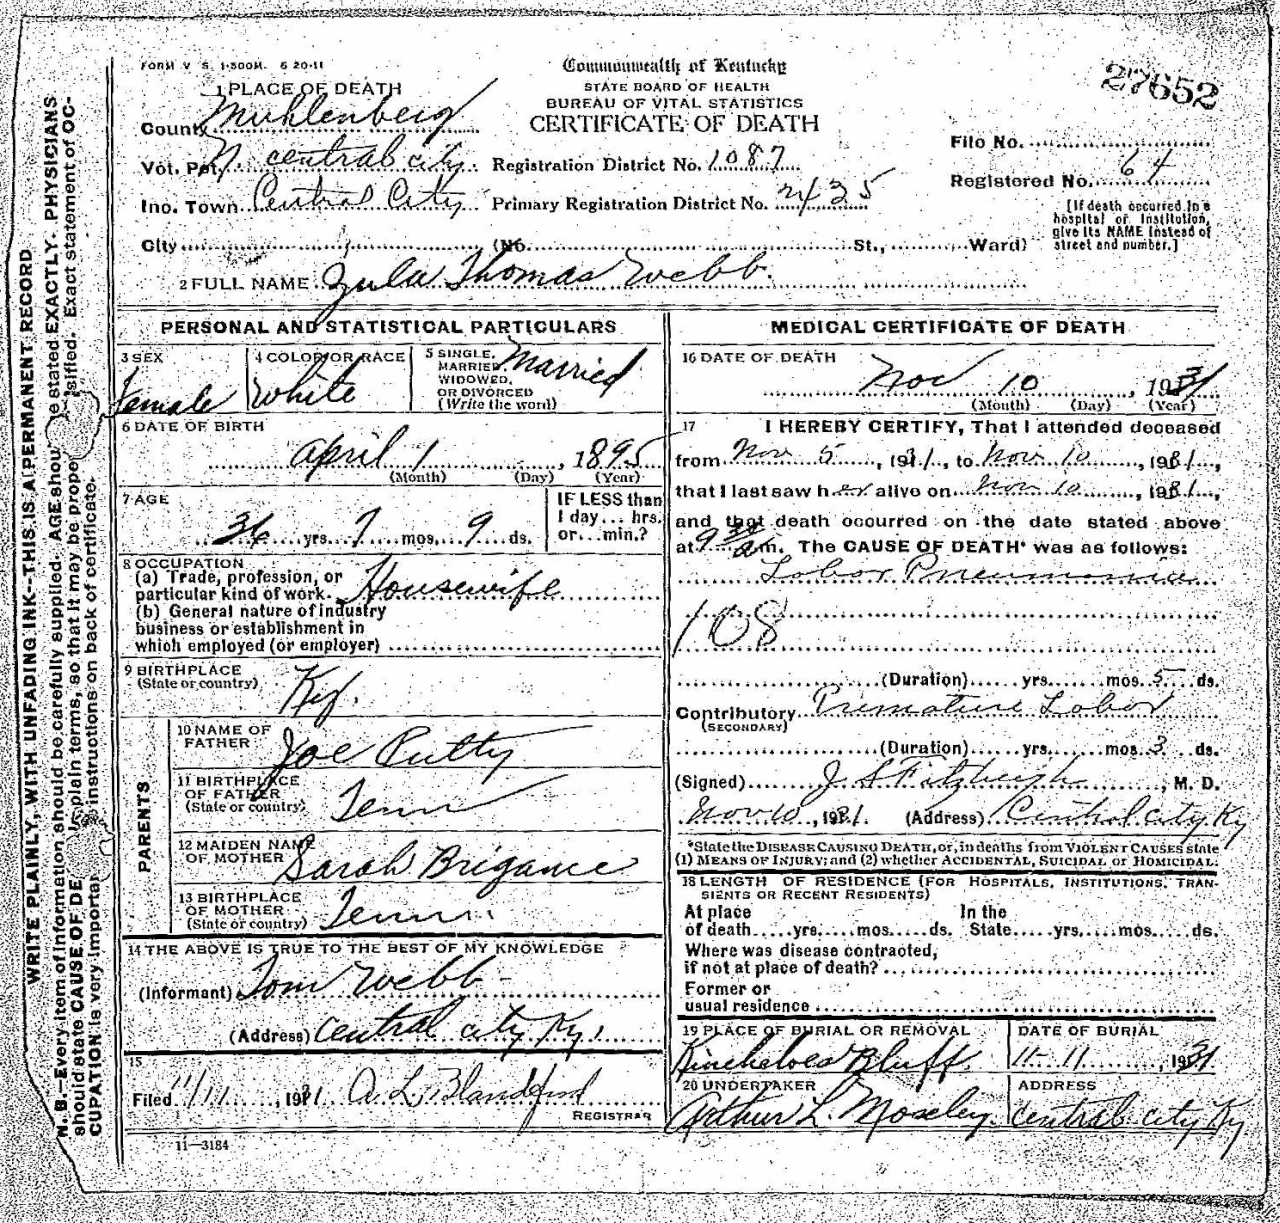 FORM V S. 1-500M. 6 20-11
Commonwealth of Kentucky
STATE BOARD OF HEALTH
BUREAU OF VITAL STATISTICS
CERTIFICATE OF DEATH
27652
1 PLACE OF DEATH
County Muhlenberg
Vot. Pct. N. Central City. Registration District No. 1087
Inc. Town Central City Primary Registration District No. 2435
City (No. St., Ward)
File No.
Registered No. 64
[If death occurred in a
hospital or institution,
give its NAME instead of
street and number.]
2 FULL NAME Zula Thomas Webb.
PERSONAL AND STATISTICAL PARTICULARS
3 SEX
Female
4 COLOR OR RACE
White
5 SINGLE,
MARRIED,
WIDOWED,
OR DIVORCED
(Write the word)
Married
6 DATE OF BIRTH
April 1, 1895
(Month) (Day) (Year)
7 AGE
36 yrs. 7 mos. 9 ds.
IF LESS than
1 day... hrs.
or...min.?
8 OCCUPATION
(a) Trade, profession, or
particular kind of work. Housewife
(b) General nature of industry
business or establishment in
which employed (or employer)
9 BIRTHPLACE
(State or country) Ky.
PARENTS
10 NAME OF
FATHER Joe Putty
11 BIRTHPLACE
OF FATHER
(State or country) Tenn
12 MAIDEN NAME
OF MOTHER Sarah Brigance
13 BIRTHPLACE
OF MOTHER
(State or country) Tenn
14 THE ABOVE IS TRUE TO THE BEST OF MY KNOWLEDGE
(Informant) Tom Webb
(Address) Central City Ky.
15
Filed 11/11, 1931 A. L. Blandford
REGISTRAR
11-3184
MEDICAL CERTIFICATE OF DEATH
16 DATE OF DEATH
Nov 10, 1931
(Month) (Day) (Year)
17 I HEREBY CERTIFY, That I attended deceased
from Nov 5, 1931, to Nov 10, 1931,
that I last saw her alive on Nov 10, 1931,
and that death occurred on the date stated above
at 9 30 a.m. The CAUSE OF DEATH* was as follows:
Lobar Pneumonia
108
(Duration) yrs. mos. 5 ds.
Contributory Premature Labor
(SECONDARY)
(Duration) yrs. mos. 3 ds.
(Signed) J S Fitzhugh, M. D.
Nov 10, 1931. (Address) Central City Ky
*State the DISEASE CAUSING DEATH, or, in deaths from VIOLENT CAUSES state
(1) MEANS OF INJURY; and (2) whether ACCIDENTAL, SUICIDAL or HOMICIDAL.
18 LENGTH OF RESIDENCE (FOR HOSPITALS, INSTITUTIONS, TRAN-
SIENTS OR RECENT RESIDENTS)
At place In the
of death yrs. mos. ds. State yrs. mos. ds.
Where was disease contracted,
if not at place of death?
Former or
usual residence
19 PLACE OF BURIAL OR REMOVAL
Kincheloes Bluff.
DATE OF BURIAL
11-11, 1931
20 UNDERTAKER
Arthur L. Moseley
ADDRESS
Central City Ky
WRITE PLAINLY, WITH UNFADING INK--THIS IS A PERMANENT RECORD
N. B.—Every item of information should be carefully supplied. AGE should be stated EXACTLY. PHYSICIANS
should state CAUSE OF DE plain terms, so that it may be prope sified. Exact statement of OC-
CUPATION is very importa instructions on back of certificate.